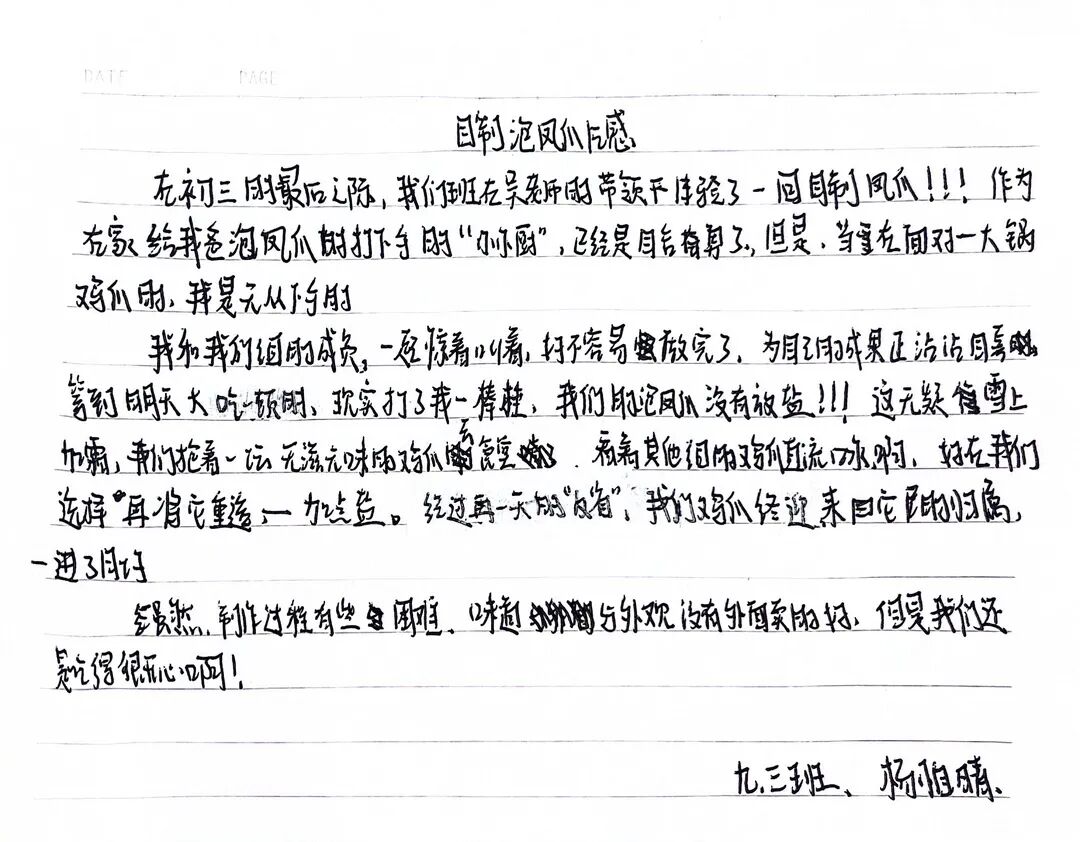 DATE PAGE
自制泡凤爪后感
在初三的最后之际,我们班在吴老师的带领下体验了一回自制凤爪!!!作为
在家给我爸泡凤爪时打下手的“小厨”,已经是自信有算了,但是,当在面对一大锅
鸡爪时,我是无从下手的
我和我们组的成员,一起惊着叫着,好不容易做完了,为自己的成果正沾沾自喜
等到明天大吃一顿时,现实打了我一棒槌,我们的泡凤爪没有放盐!!!这无疑雪上
加霜,我们抱着一坛无滋无味的鸡爪去食堂,看着其他组的鸡爪直流口水啊,好在我们
选择“再将它重造”一加点盐。经过再一天的“反省”,我们鸡爪终迎来自它的归属,
一进了肚
虽然,制作过程有些困难,味道与外观没有外面卖的好,但是我们还
是吃得很开心啊!
九.三班、杨雅晴.